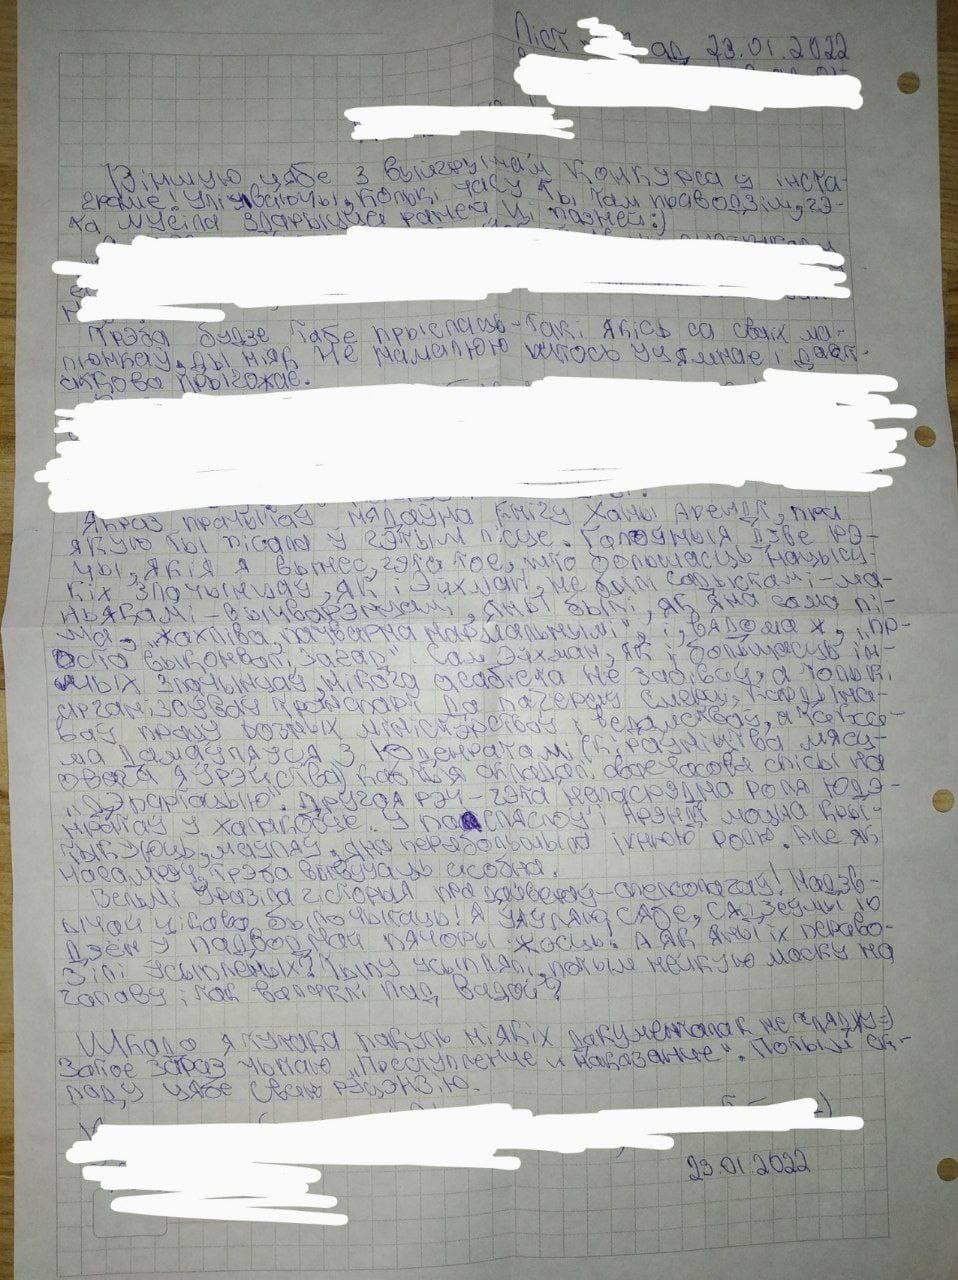 Ліст ад 23.01.2022
Віншую цябе з выйгрышам конкурса у інста-
граме! Улічваючы, колькі часу ты там праводзіш, гэ-
та мусіла здарыцца раней, ці пазней:)
Трэба будзе табе прыслаць-такі якісь са сваіх ма-
люнкаў, ды ніяк не намалюю нешто уцямнае і дадат-
кова прыгожае.
Якраз прачытаў нядаўна кнігу Ханы Арендт, пра
якую ты пісала у гэтым лісце. Галоўныя дзве рэ-
чы, якія я вынес, гэта тое, што большасць нацысц-
кіх злачынцаў, як і Эйхман, не былі садыстамі-ма-
ньякамі-вылюдкамі, яны былі, як яна сама пі-
ша, "жахліва, пачварна нармальнымі", і, вядома ж, "пр-
оста выконвалі загад". Сам Эйхман, як і большасць ін-
шых злачынцаў, нікога асабіста не забіваў, а толькі
арганізоўваў транспарт да лагераў смерці, каардына-
ваў працу розных міністэрстваў і ведамстваў, а
ма дамаўляўся з Юденратамі (кіраўніцтва мясц-
овага яўрэйства) каб тыя складалі своечасова спісы на
"дэпартацыю". Другая рэч - гэта непасрэдна роля юдэ-
нратаў у халакосце. У пасляслоўі Арэндт моцна кры-
тыкуюць, маўляў, яна перабольшыла іхнюю ролю. Але як
насамрэч, трэба вывучаць асобна.
Вельмі ўразіла гісторыя пра дайвераў-спелеолагаў! Надзв-
ычай цікава было чытаць! Я уяўляю сябе, сядзеўшы 10
дзён у падводнай пячоры. Жосць. А як яны іх перево-
зілі усыпленых? Тыпу усыплялі, потым нейкую маску на
галаву і так валаклі пад вадой?
Шкада я тутака пакуль ніякіх дакументалак не гляджу:)
Затое зараз чытаю "Преступление и наказание". Потым ск-
ладу цябе сваю рэцэнзію.
23.01.2022